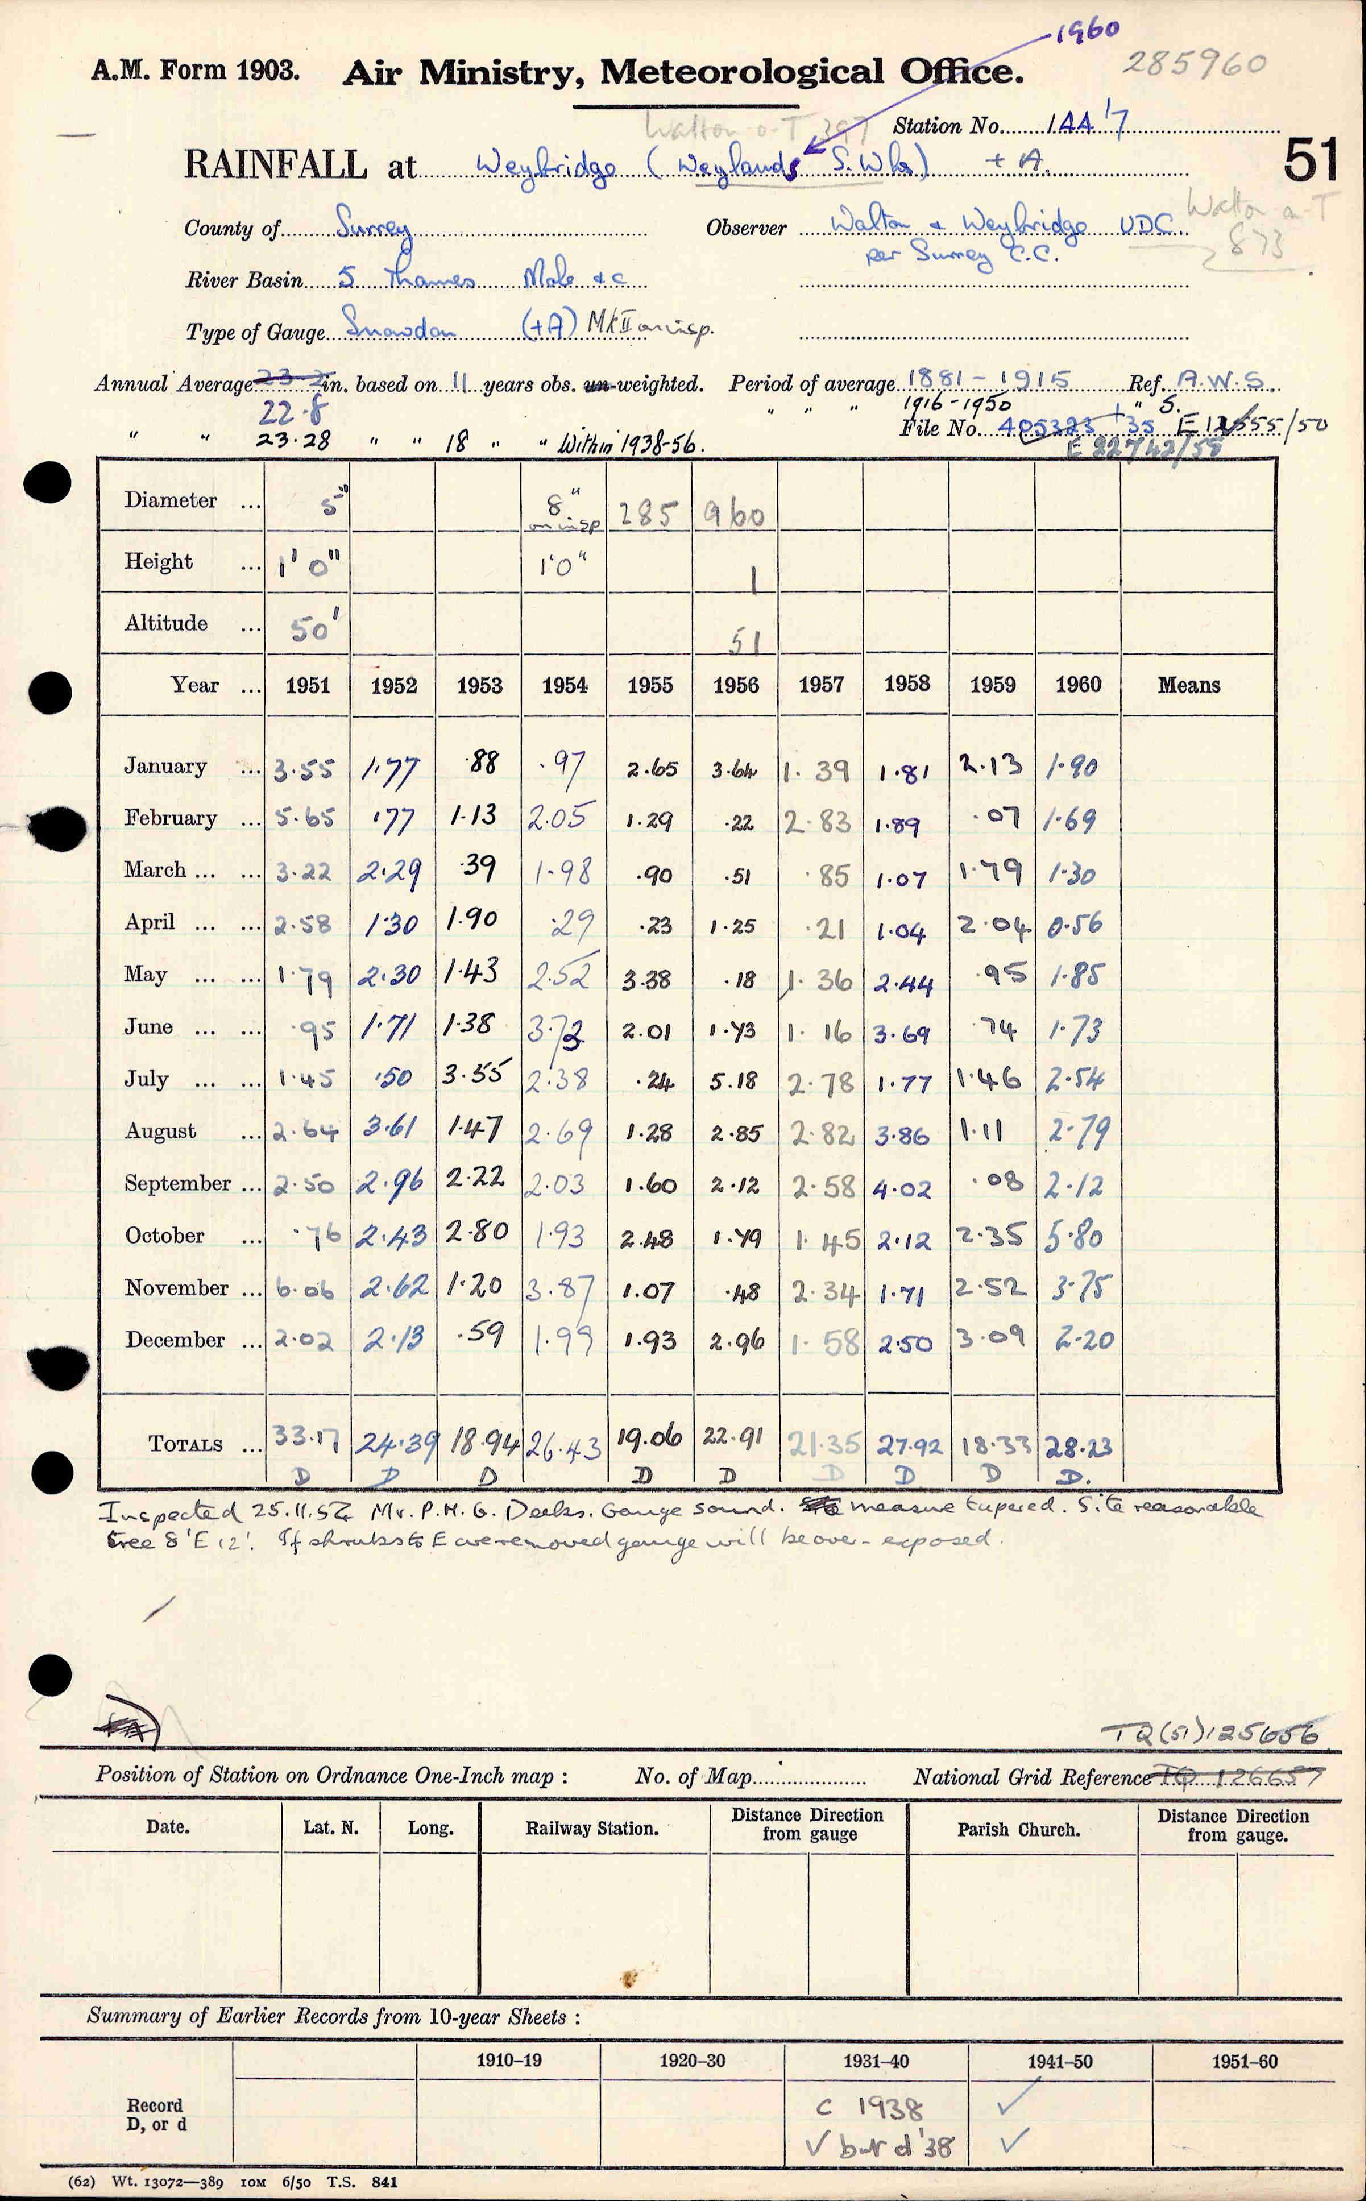 1960
A.M. Form 1903. Air Ministry, Meteorological Office. 285960
Walton-o-T 397 Station No. 144 1/7
51
RAINFALL at Weybridge (Weylands S. Wks) + A.
County of Surrey Observer Walton & Weybridge UDC Walton-on-T
per Surrey C.C. 873
River Basin 5 Thames Mole &c
Type of Gauge Snowdon (+A) Mk II on insp.
Annual Average 23.2 in. based on 11 years obs. un-weighted. Period of average 1881-1915 Ref. A.W.S.
22.8 " " " 1916-1950 " S.
" " 23.28 " " 18 " " Within 1938-56. File No. 405323/35 E12555/50
E 22742/58
Diameter ... 5" 8" on insp 285 960
Height ... 1'0" 1'0" 1
Altitude ... 50' 51
Year ... 1951 1952 1953 1954 1955 1956 1957 1958 1959 1960 Means
January ... 3.55 1.77 .88 .97 2.65 3.64 1.39 1.81 2.13 1.90
February ... 5.65 .77 1.13 2.05 1.29 .22 2.83 1.89 .07 1.69
March ... ... 3.22 2.29 .39 1.98 .90 .51 .85 1.07 1.79 1.30
April ... ... 2.58 1.30 1.90 .29 .23 1.25 .21 1.04 2.04 0.56
May ... ... 1.79 2.30 1.43 2.52 3.38 .18 1.36 2.44 .95 1.85
June ... ... .95 1.71 1.38 3.73 2.01 1.73 1.16 3.69 .74 1.73
July ... ... 1.45 .50 3.55 2.38 .24 5.18 2.78 1.77 1.46 2.54
August ... 2.64 3.61 1.47 2.69 1.28 2.85 2.82 3.86 1.11 2.79
September ... 2.50 2.96 2.22 2.03 1.60 2.12 2.58 4.02 .08 2.12
October ... .76 2.43 2.80 1.93 2.48 1.79 1.45 2.12 2.35 5.80
November ... 6.06 2.62 1.20 3.87 1.07 .48 2.34 1.71 2.52 3.75
December ... 2.02 2.13 .59 1.99 1.93 2.96 1.58 2.50 3.09 2.20
TOTALS ... 33.17 24.39 18.94 26.43 19.06 22.91 21.35 27.92 18.33 28.23
D D D D D D D D D.
Inspected 25.11.54 Mr. P.H.G. Deeks. Gauge sound. measure tapered. Site reasonable
tree 8 'E 12'. If shrubs to E are removed gauge will be over-exposed.
TQ(51)125656
Position of Station on Ordnance One-Inch map : No. of Map National Grid Reference TQ 126657
Date. Lat. N. Long. Railway Station. Distance Direction from gauge Parish Church. Distance Direction from gauge.
Summary of Earlier Records from 10-year Sheets :
1910–19 1920–30 1931–40 1941–50 1951–60
Record D, or d C 1938 ✓
✓ but d '38 ✓
(62) Wt. 13072—389 10M 6/50 T.S. 841